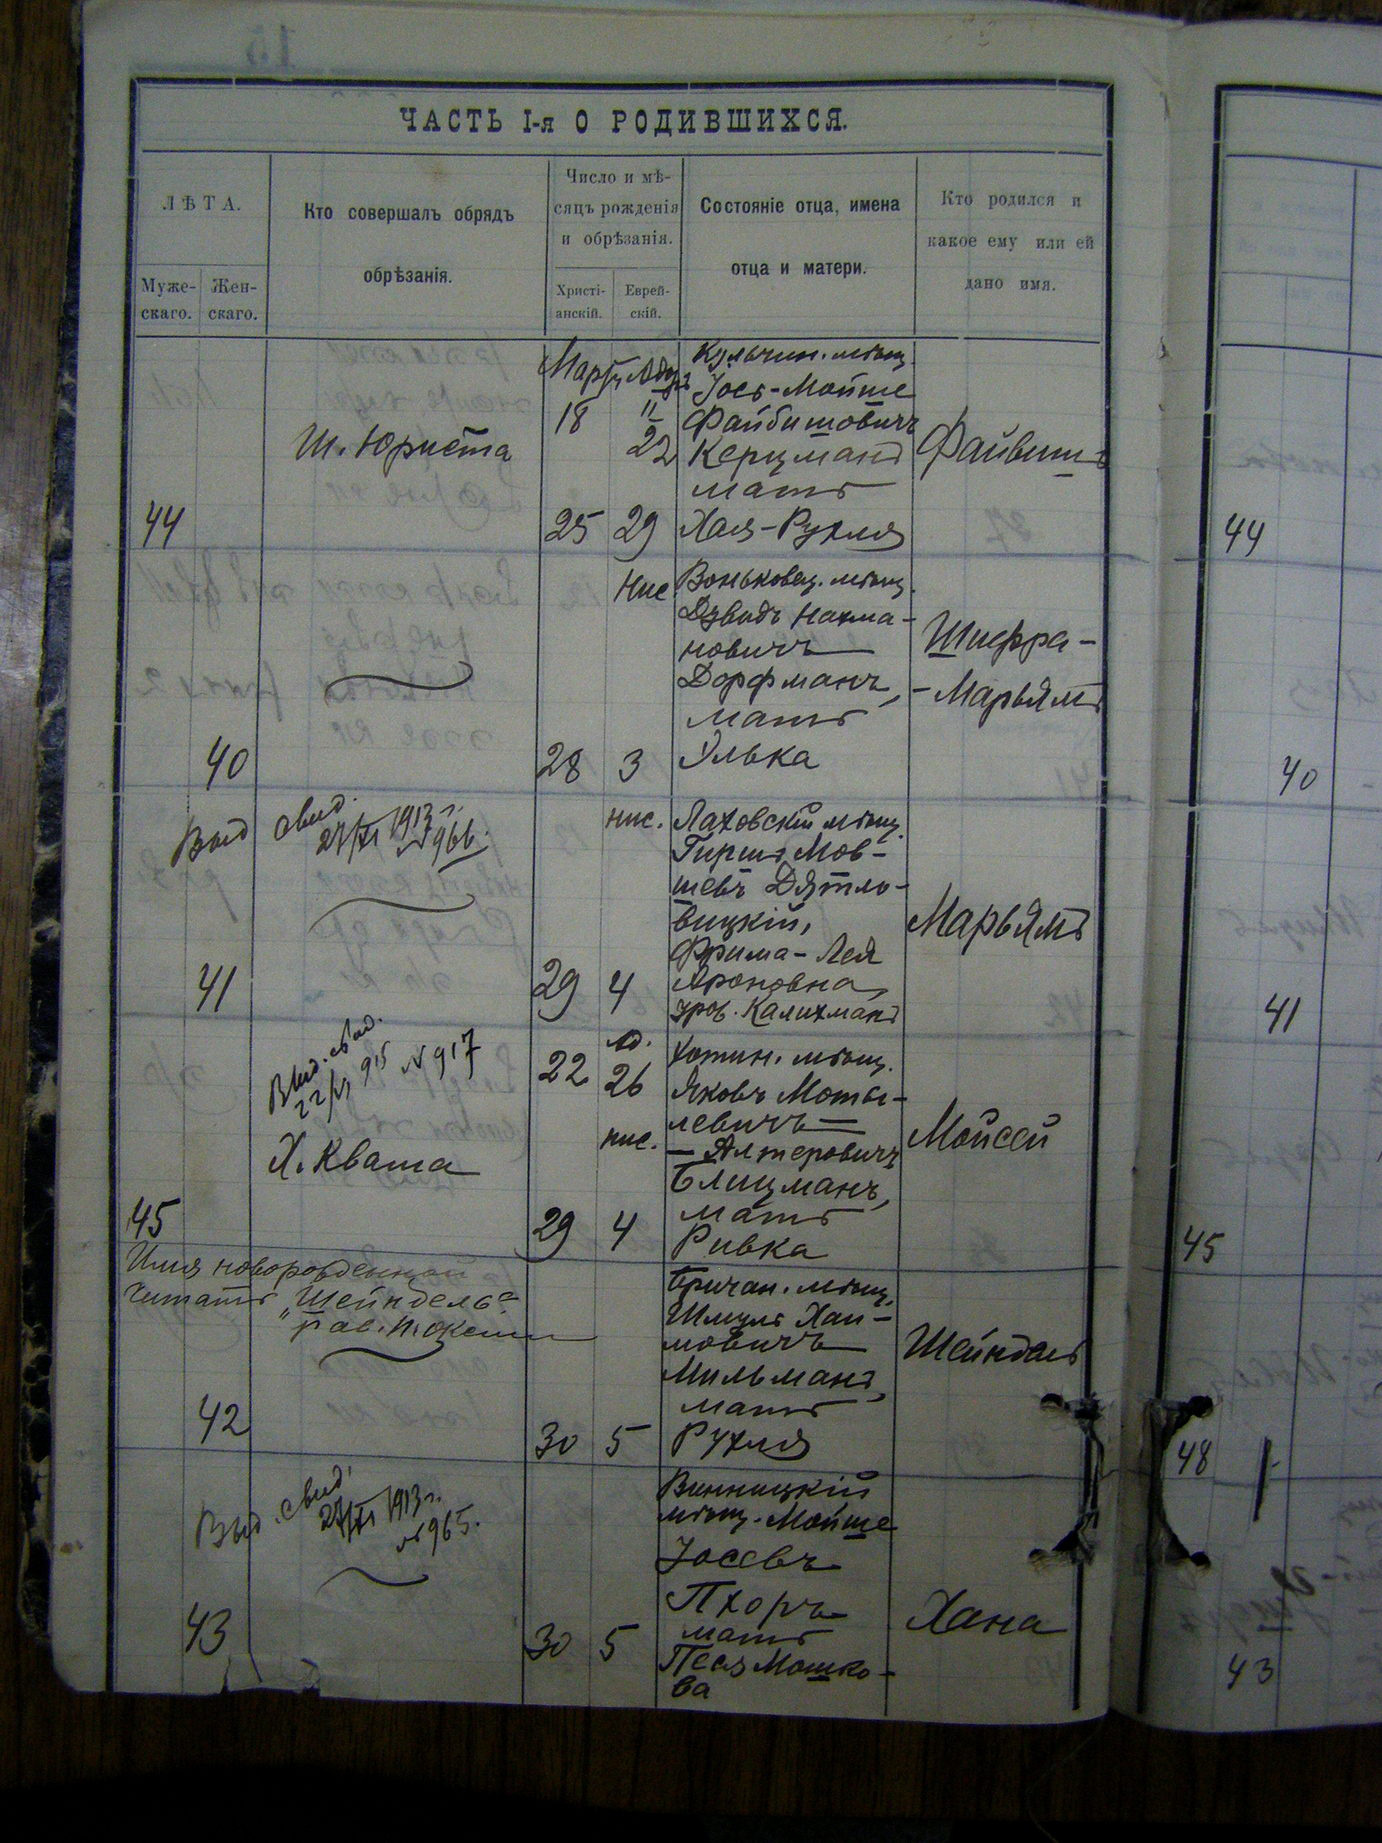 ЧАСТЬ I-я О РОДИВШИХСЯ.
ЛѢТА.
Муже-
скаго.
Жен-
скаго.
Кто совершалъ обрядъ
обрѣзанія.
Число и мѣ-
сяцъ рожденія
и обрѣзанія.
Христі-
анскій.
Еврей-
скій.
Состояніе отца, имена
отца и матери.
Кто родился и
какое ему или ей
дано имя.
44
Ш. Юриста
Мартъ Адаръ
18 11
22
25 29
Кульчин. мѣщ.
Іось-Мойше
Файбишовичъ
Керцманъ
мать
Хая-Рухля
Файвишъ
40
Нис
28 3
Воньковец. мѣщ.
Дувидъ Нахма-
новичъ
Дорфманъ,
мать
Улька
Шифра-
-Марьямъ
41
Выд свид.
27/XI 1913 г.
№ 966.
нис.
29 4
Ляховскій мѣщ.
Гиршъ Мов-
шевъ Дятло-
вицкій,
Фрима-Лея
Ароновна,
уров. Калихманъ
Марьямъ
45
Выд. свид.
915 № 917
Х. Кваша
ад.
22 26
нис.
29 4
Хотин. мѣщ.
Яковъ Моты-
левичъ-
-Алтеровичъ
Блицманъ,
мать
Ривка
Мойсей
Имя новорожденной
читать „Шейндель"
рав.
42
30 5
Бричан. мѣщ.
Шмуль Хаи-
мовичъ
Мильманъ,
мать
Рухля
Шейндель
43
Выд. свид.
27/XI 1913 г.
№ 965.
30 5
Винницкій
мѣщ. Мойше
Іосевъ
Пхоръ
мать
Песя Мошко-
ва
Хана
44
40
41
45
48
43